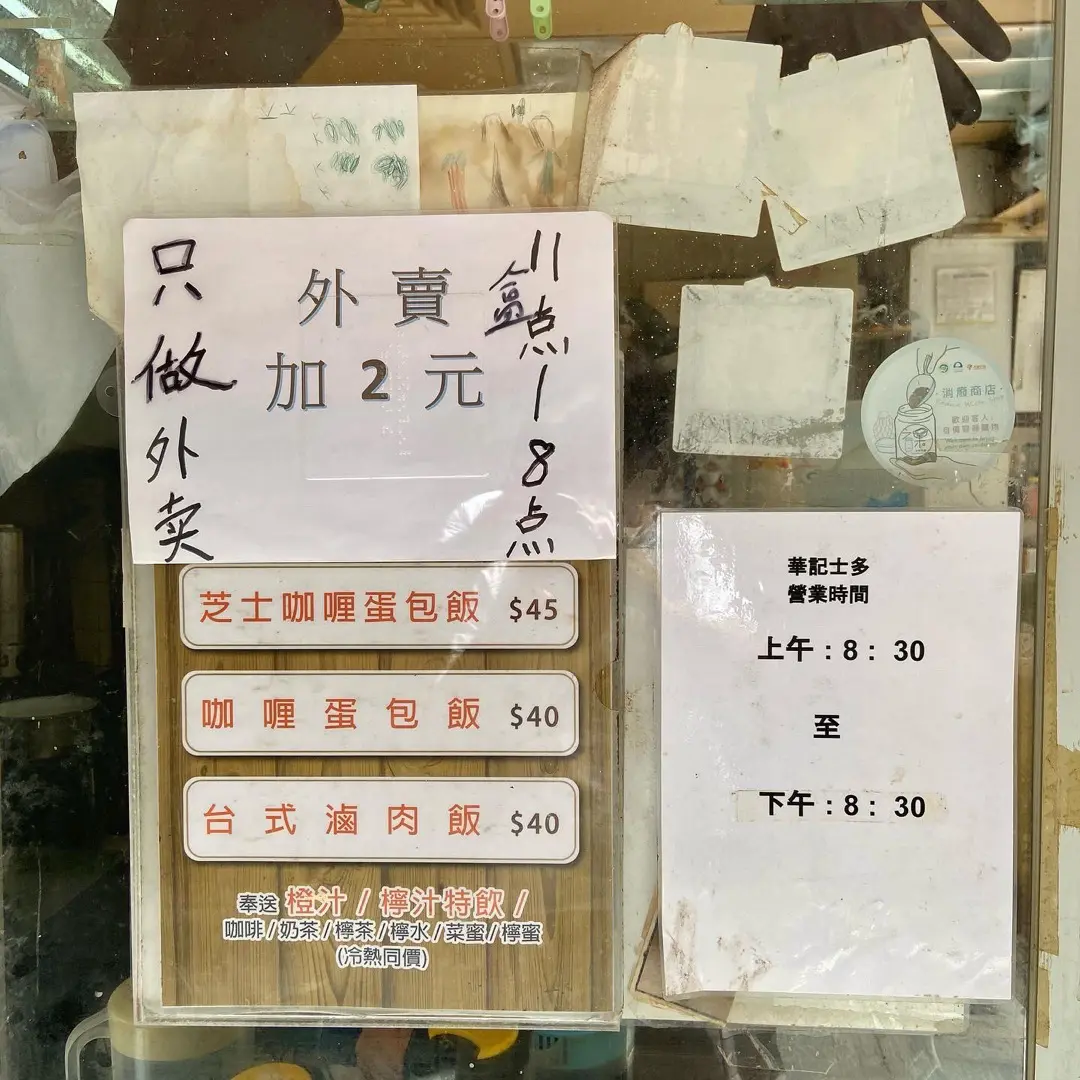 只做外卖
外賣
加 2 元
盒
11点-8点
芝士咖喱蛋包飯 $45
咖喱蛋包飯 $40
台式滷肉飯 $40
奉送 橙汁 / 檸汁特飲 /
咖啡/奶茶/檸茶/檸水/菜蜜/檸蜜
(冷熱同價)
消廢商店
歡迎客人:
華記士多
營業時間
上午:8: 30
至
下午:8: 30